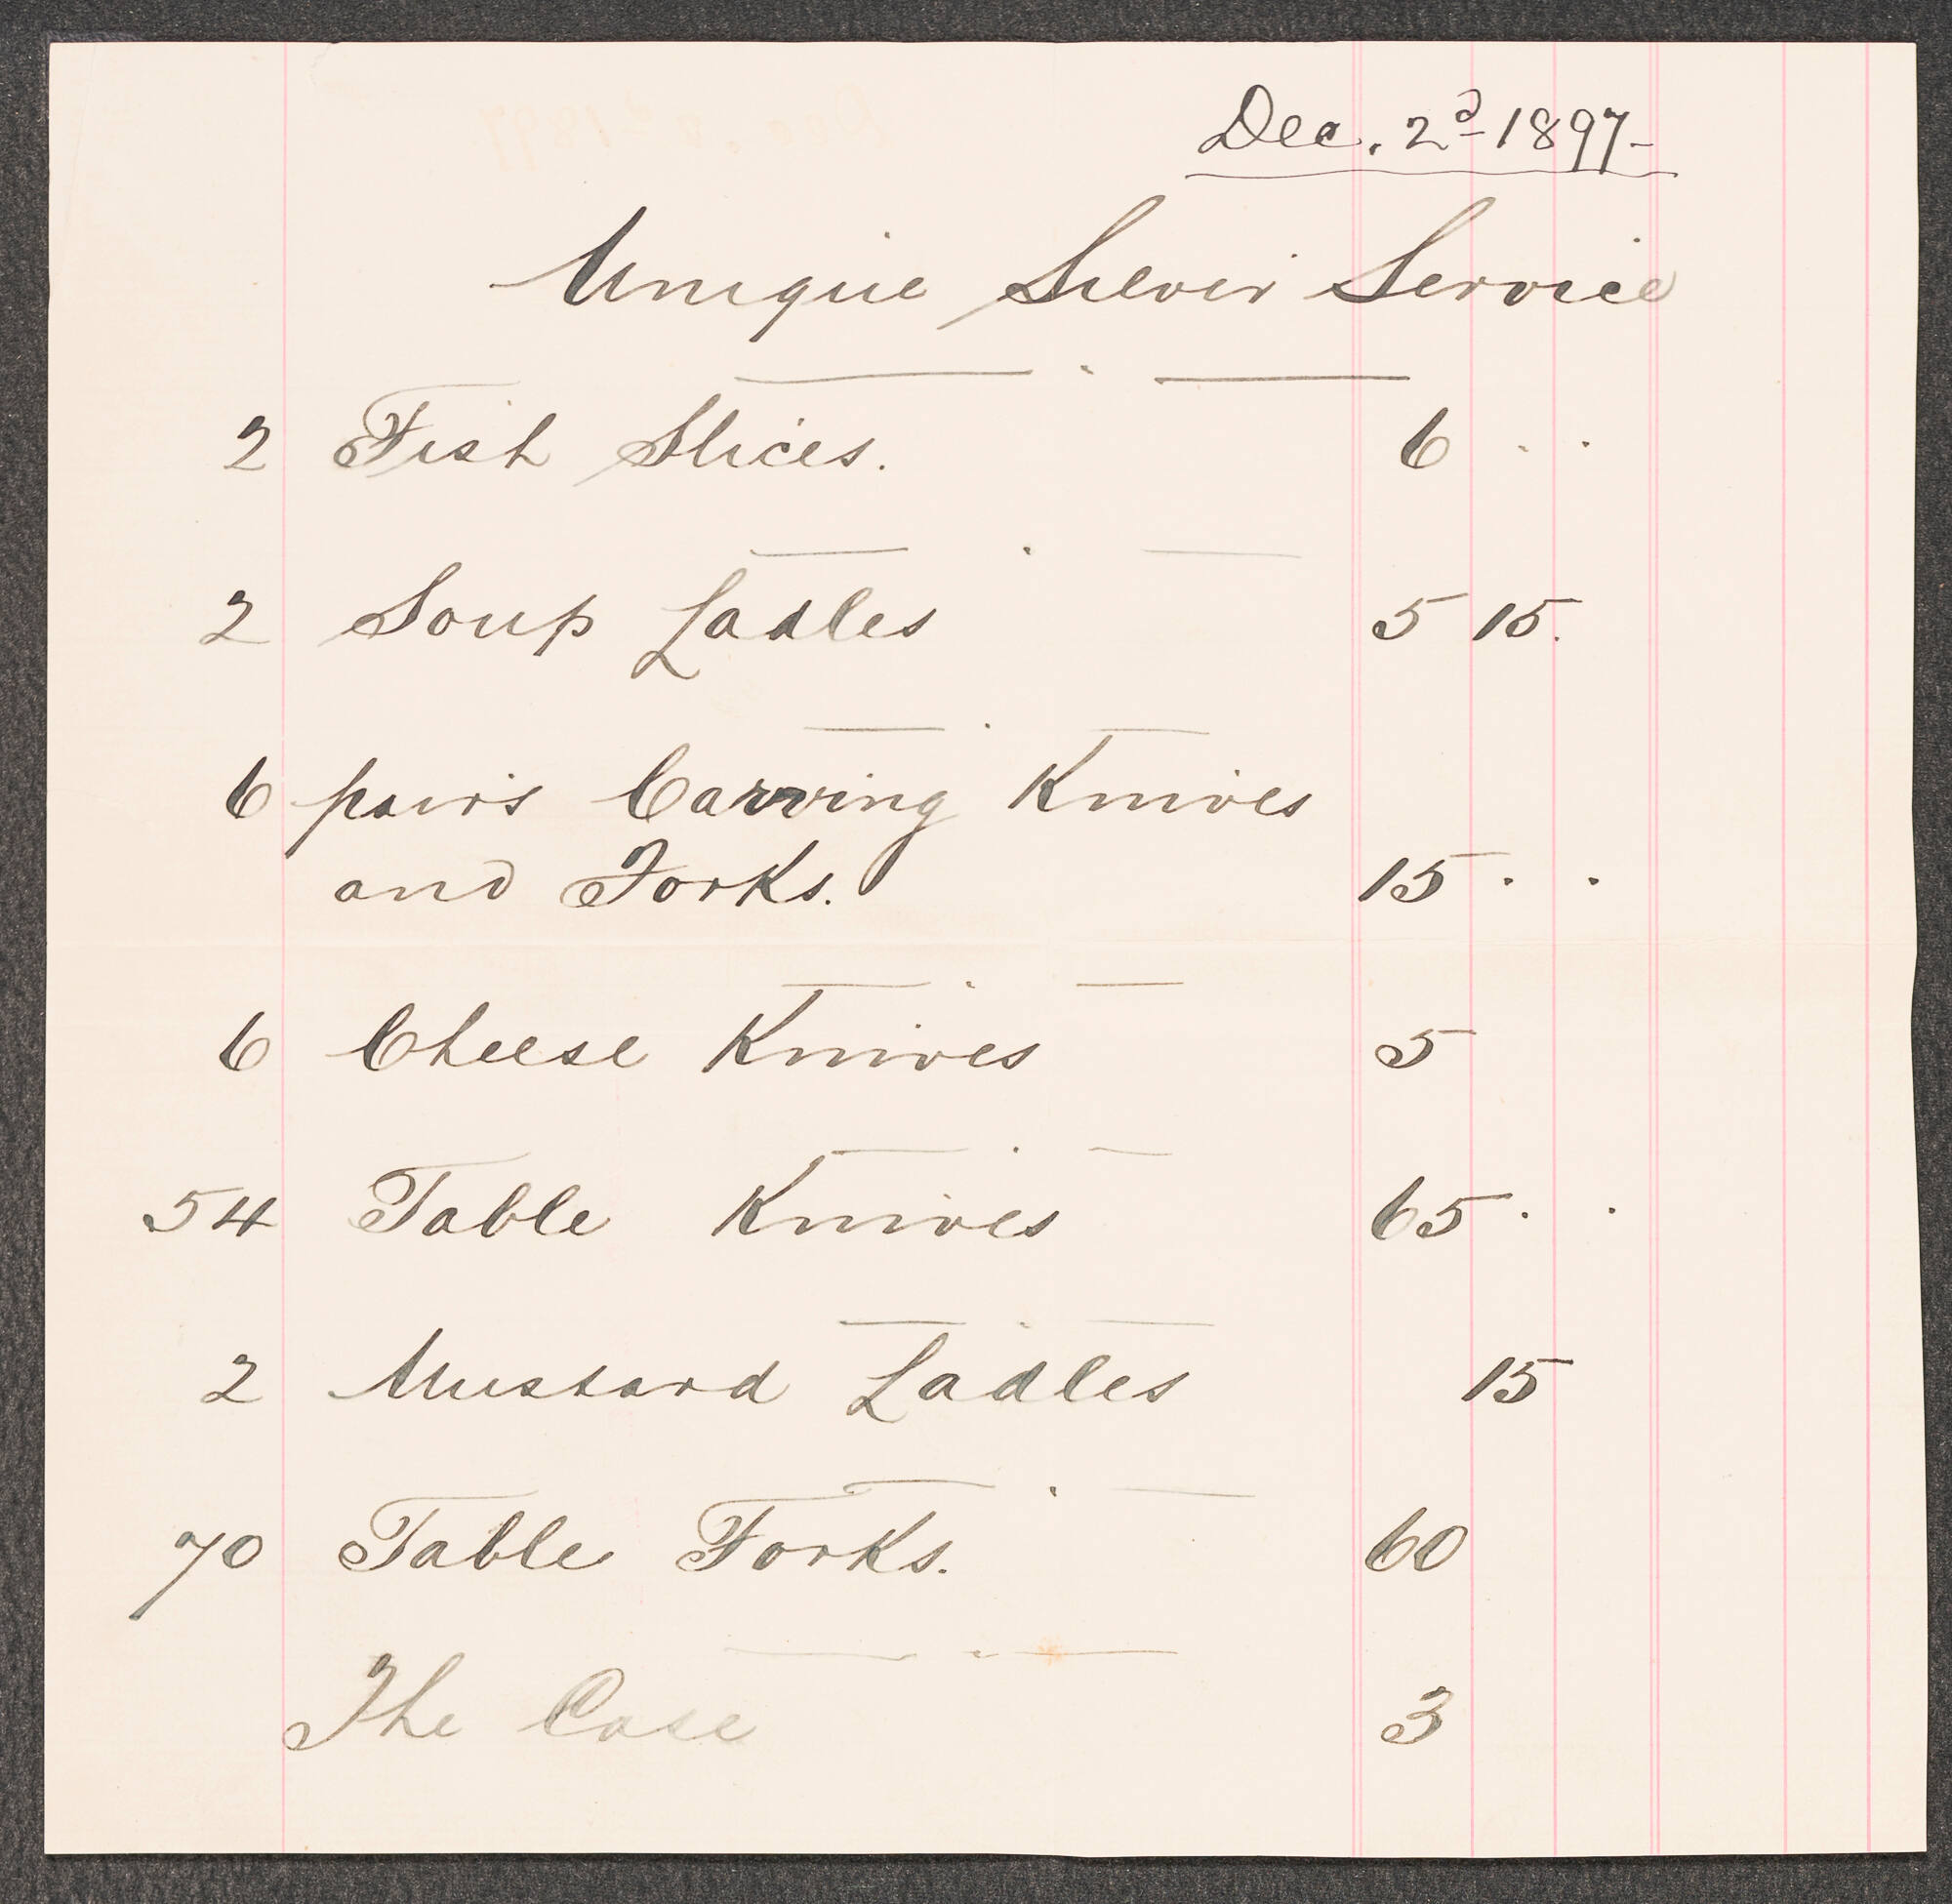 Dec. 2d 1897-
Unique Silver Service
2 Fish Slices. 6 . .
2 Soup Ladles 5 15.
6 pairs Carving Knives
and Forks. 15 . .
6 Cheese Knives 5
54 Table Knives 65 . .
2 Mustard Ladles 15
70 Table Forks. 60
The Case 3